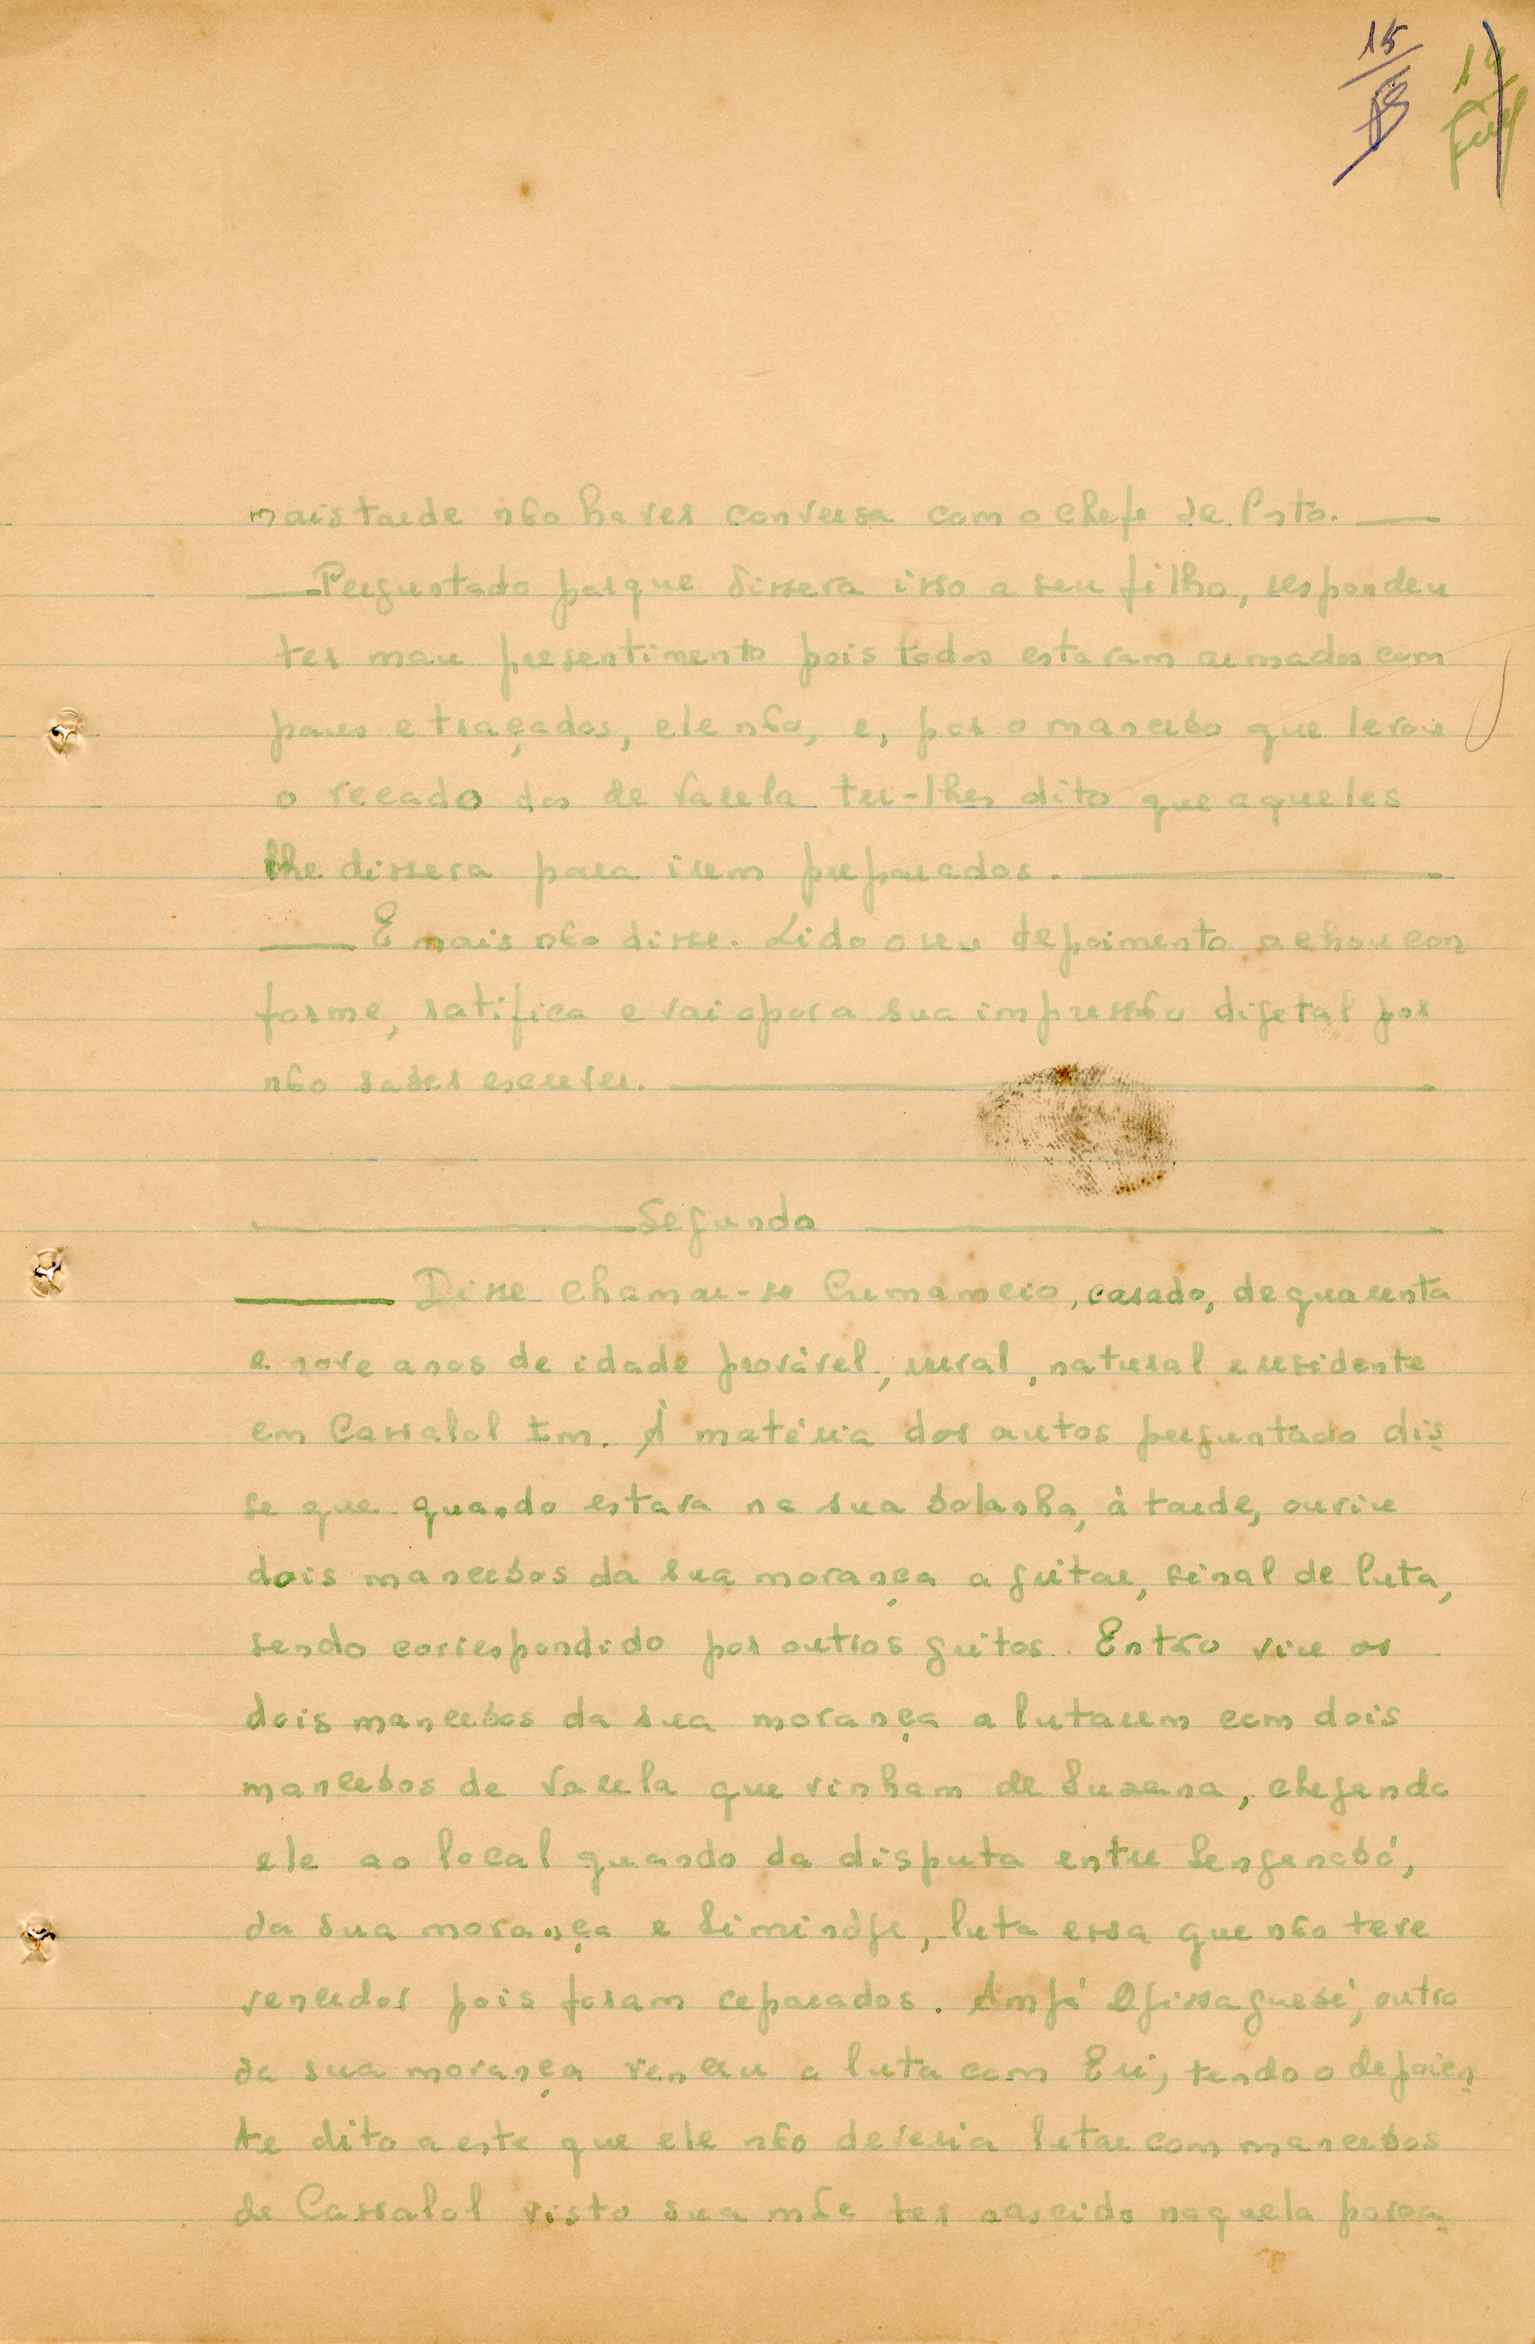 15
mais tarde não haver conversa com o chefe de Posto.
Perguntado porque dissera isso a seu filho, respondeu
ter mau presentimento pois todos estavam armados com
paus e traçados, ele não, e, por o mancebo que levou
o recado dos de Varela ter-lhes dito que aqueles
lhe dissera para irem preparados.
E mais não disse. Lido o seu depoimento achou con
forme, ratifica e vai opor a sua impressão digetal por
não saber escrever.
Segundo
Disse chamar-se Cumamcio, casado, de quarenta
e nove anos de idade provável, rural, natural e residente
em Cassalol Em. À matéria dos autos perguntado dis
se que quando estava na sua bolanha, à tarde, ouviu
dois mancebos da sua morança a gritar, sinal de luta,
sendo correspondido por outros gritos. Então viu os
dois mancebos da sua morança a lutarem com dois
mancebos de Varela que vinham de Suzana, chegando
ele ao local quando da disputa entre Sengenabó,
da sua morança e Siminóge, luta essa que não teve
vencedor pois foram separados. Ampá outro
da sua morança venceu a luta com Eri, tendo o depoien
te dito a este que ele não deveria lutar com mancebos
de Cassalol visto sua mãe ter nascido naquela povoa